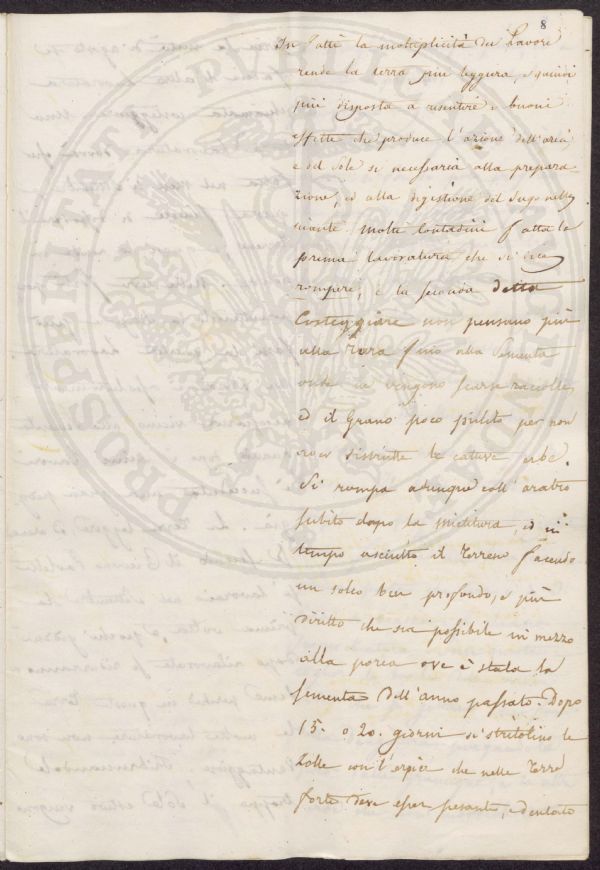 8
In Fatti la moltiplicità dei Lavori
rende la terra più leggiera, e quindi
più disposta a risentire i buoni
effetti che produce l'azione dell'aria
e del Sole sì necessaria alla prepara
zione, ed alla digestione del Sugo nelle
piante. Molti Contadini fatta la
prima lavoratura che si dice
rompere, e la seconda detta
Costeggiare non pensano più
alla Terra fino alla Sementa
onde ne vengono scarse raccolte,
ed il Grano poco pulito per non
aver distrutte le cative erbe.
Si rompa adunque coll'aratro
subito dopo la mietitura, ed in
tempo asciutto il Terreno facendo
un solco ben profondo, e più
diritto che sia possibile in mezzo
alla porca ove è stata la
sementa dell'anno passato. Dopo
15. o 20. giorni si stritolino le
Zolle con l'erpice che nelle Terre
forti deve esser pesante, e dentato